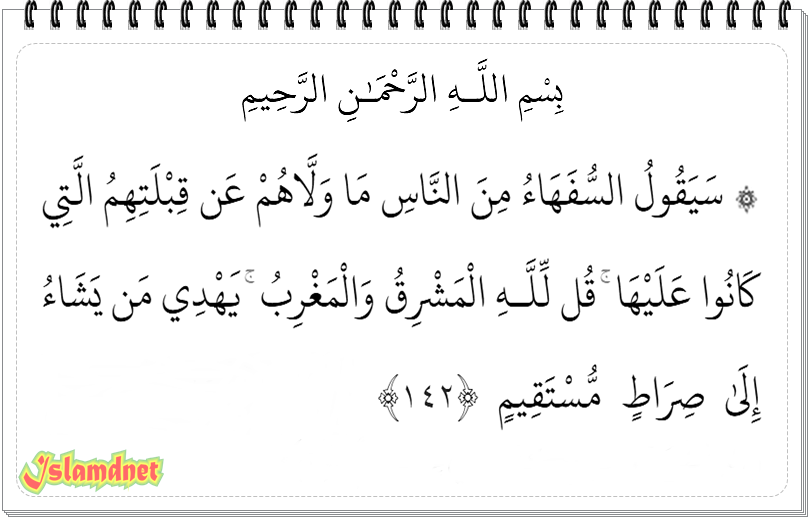 بِسْمِ اللَّـهِ الرَّحْمَـٰنِ الرَّحِيمِ
۞ سَيَقُولُ السُّفَهَاءُ مِنَ النَّاسِ مَا وَلَّاهُمْ عَن قِبْلَتِهِمُ الَّتِي
كَانُوا عَلَيْهَا ۚ قُل لِّلَّـهِ الْمَشْرِقُ وَالْمَغْرِبُ ۚ يَهْدِي مَن يَشَاءُ
إِلَىٰ صِرَاطٍ مُّسْتَقِيمٍ ﴿١٤٢﴾
Islamdnet